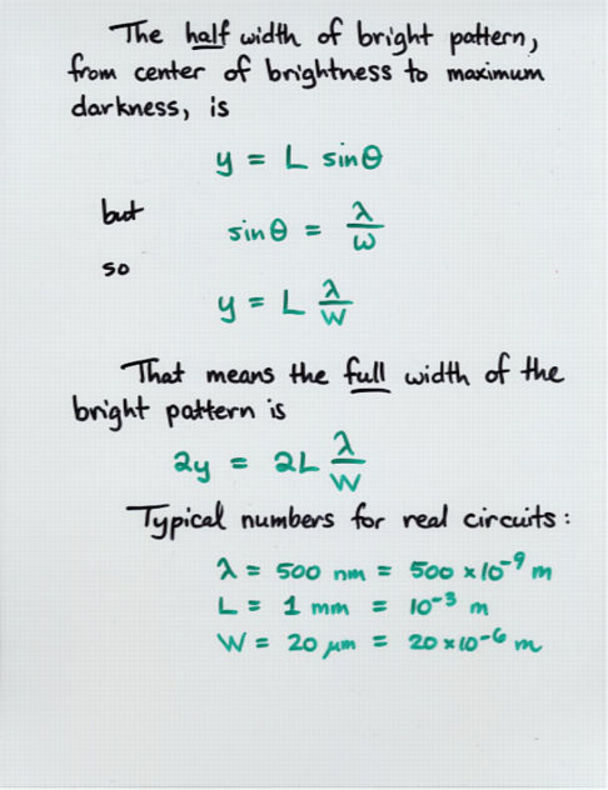 The half width of bright pattern,
from center of brightness to maximum
darkness, is
y = L sinθ
but
sinθ = λ/ω
so
y = L λ/W
That means the full width of the
bright pattern is
2y = 2L λ/W
Typical numbers for real circuits:
λ = 500 nm = 500 x10⁻⁹ m
L = 1 mm = 10⁻³ m
W = 20 μm = 20x10⁻⁶ m